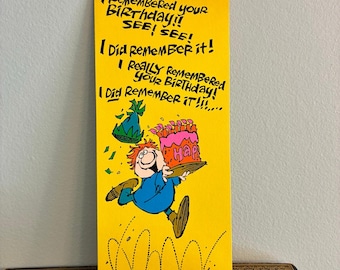 I REMEMBERED YOUR
BIRTHDAY!!
SEE! SEE!
I DID REMEMBER IT!
I REALLY REMEMBERED
YOUR BIRTHDAY!
I DID REMEMBER IT!!!....
HAP